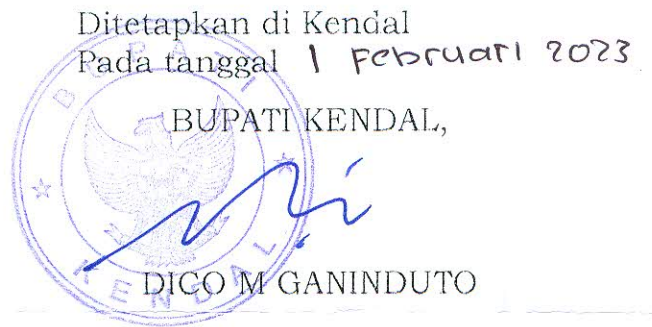 Ditetapkan di Kendal
Pada tanggal 1 Februari 2023
BUPATI KENDAL,
DICO M GANINDUTO
BUPATI
KENDAL